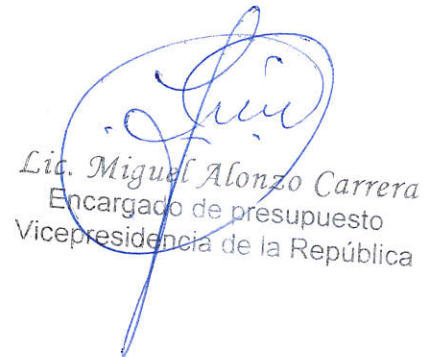 Lic. Miguel Alonzo Carrera
Encargado de presupuesto
Vicepresidencia de la República